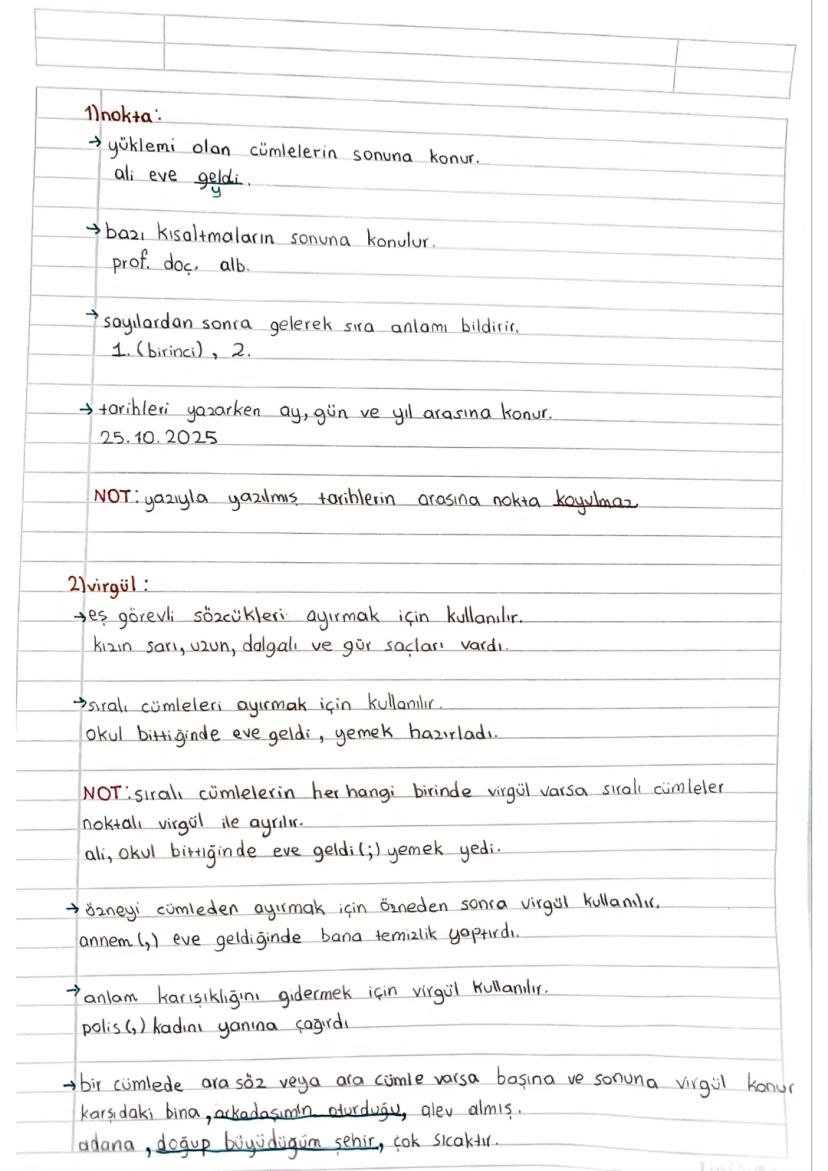 1)nokta:
→ yüklemi olan cümlelerin sonuna konur.
ali eve geldi.
y
→ bazı kısaltmaların sonuna konulur.
prof. doç. alb.
→ sayılardan sonra gelerek sıra anlamı bildirir.
1. (birinci), 2.
→ tarihleri yazarken ay, gün ve yıl arasına konur.
25.10.2025
NOT: yazıyla yazılmış tarihlerin arasına nokta koyulmaz
2)virgül :
→ eş görevli sözcükleri ayırmak için kullanılır.
kızın sarı, uzun, dalgalı ve gür saçları vardı.
→ sıralı cümleleri ayırmak için kullanılır.
okul bittiğinde eve geldi, yemek hazırladı.
NOT: sıralı cümlelerin her hangi birinde virgül varsa sıralı cümleler
noktalı virgül ile ayrılır.
ali, okul bittiğinde eve geldi(;) yemek yedi.
→ özneyi cümleden ayırmak için özneden sonra virgül kullanılır.
annem (,) eve geldiğinde bana temizlik yaptırdı.
→ anlam karışıklığını gidermek için virgül kullanılır.
polis(,) kadını yanına çağırdı
→ bir cümlede ara söz veya ara cümle varsa başına ve sonuna virgül konur
karşıdaki bina, arkadaşımın oturduğu, alev almış.
adana, doğup büyüdüğüm şehir, çok sıcaktır.